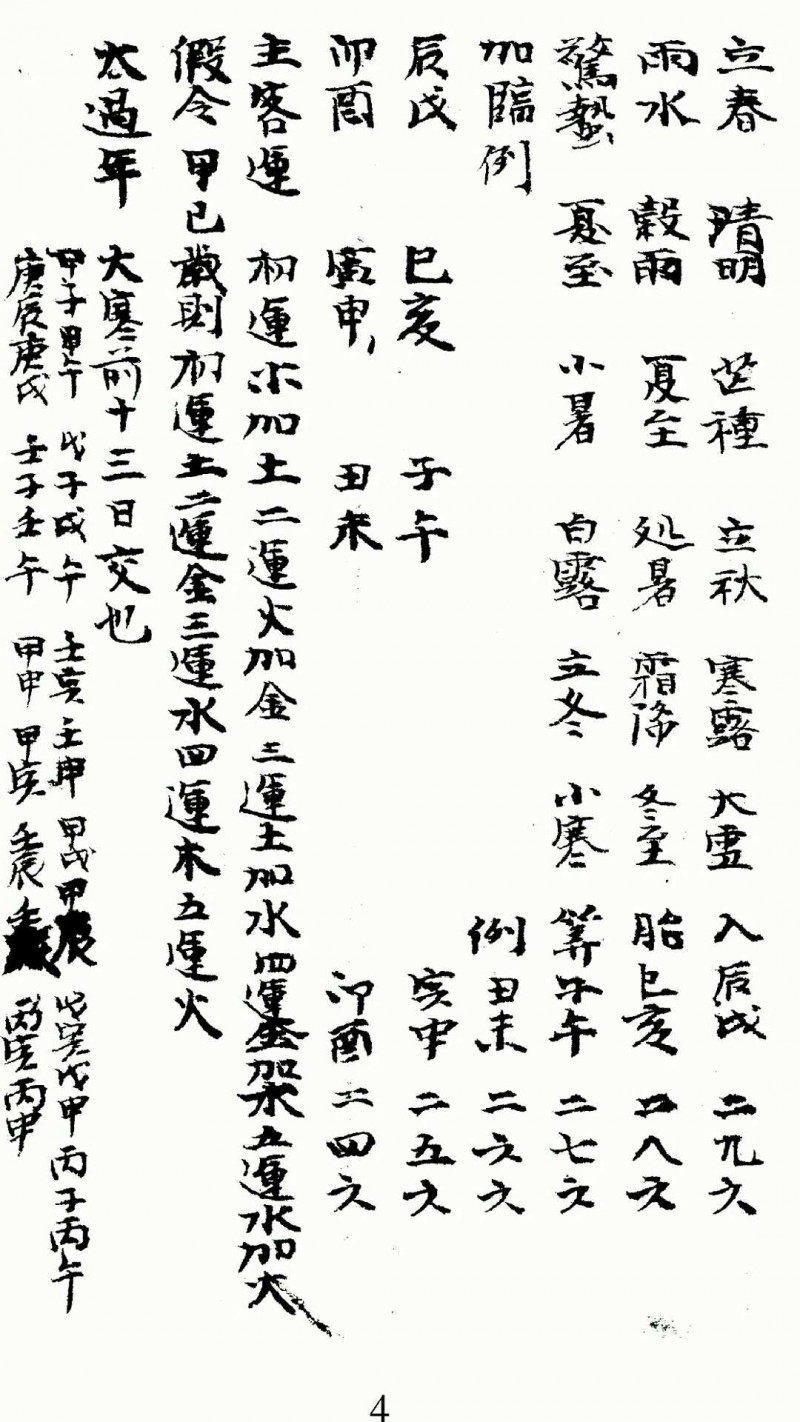 立春 晴明 芒種 立秋 寒露 大雪 入辰戌 二九六
雨水 穀雨 夏至 処暑 霜降 冬至 胎巳亥 二八六
驚蟄 夏至 小暑 白露 立冬 小寒 筭子午 二七六
加臨例 例丑未 二六六
辰戌 巳亥 子午 寅申 二五六
卯酉 寅申 丑未 卯酉 二四六
主客運 初運木加土二運火加金三運土加水四運金加木五運水加火
假令甲已歲則初運土二運金三運水四運木五運火
太過年 大寒前十三日交也
甲子甲午 戊子戊午 壬寅壬申 甲戌甲辰 戊寅戊申 丙子丙午
庚辰庚戌 壬子壬午 甲申甲寅 壬辰壬 丙寅丙申
4